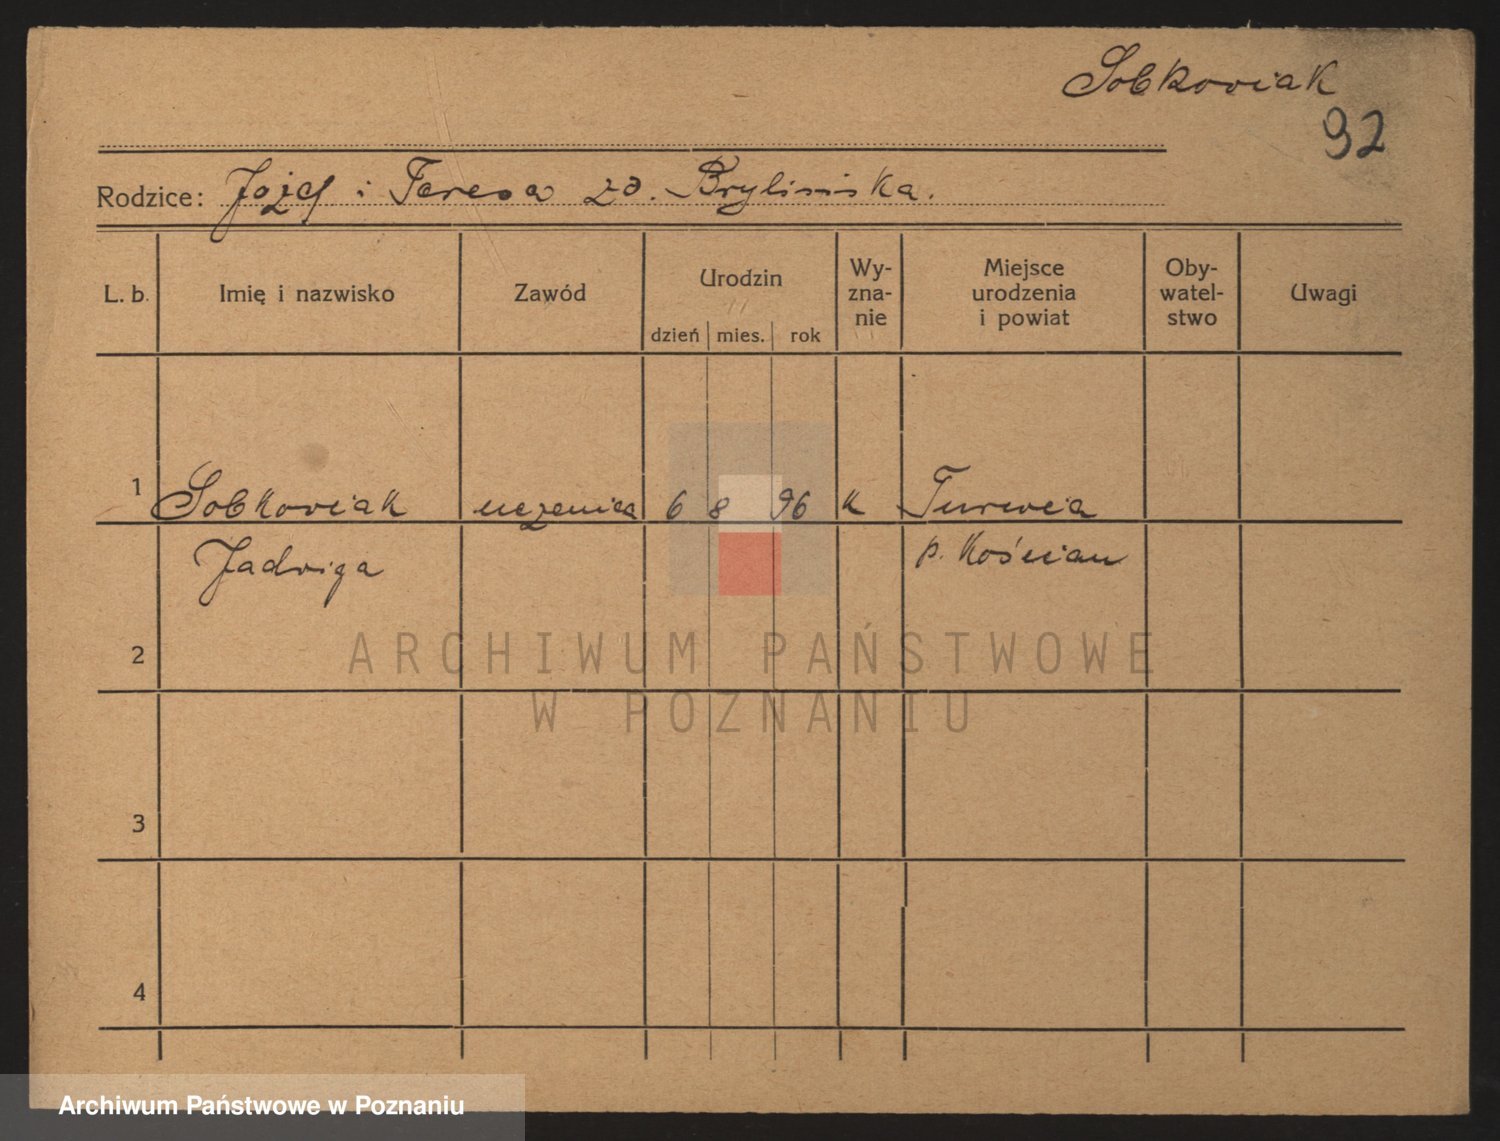 Sobkowiak
92
Rodzice: Józef i Teresa zd. Brylińska.
L. b. Imię i nazwisko Zawód Urodzin dzień mies. rok Wy-zna-nie Miejsce urodzenia i powiat Oby-watel-stwo Uwagi
1 Sobkowiak uczenica 6 8 96 k Turwia
Jadwiga p. Kościan
2
3
4
ARCHIWUM PAŃSTWOWE
W POZNANIU
Archiwum Państwowe w Poznaniu